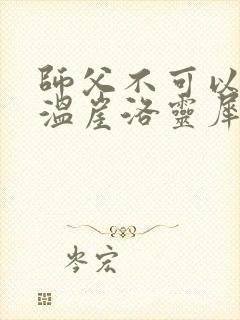 師父不可以
溫崖洛靈犀
岑宏